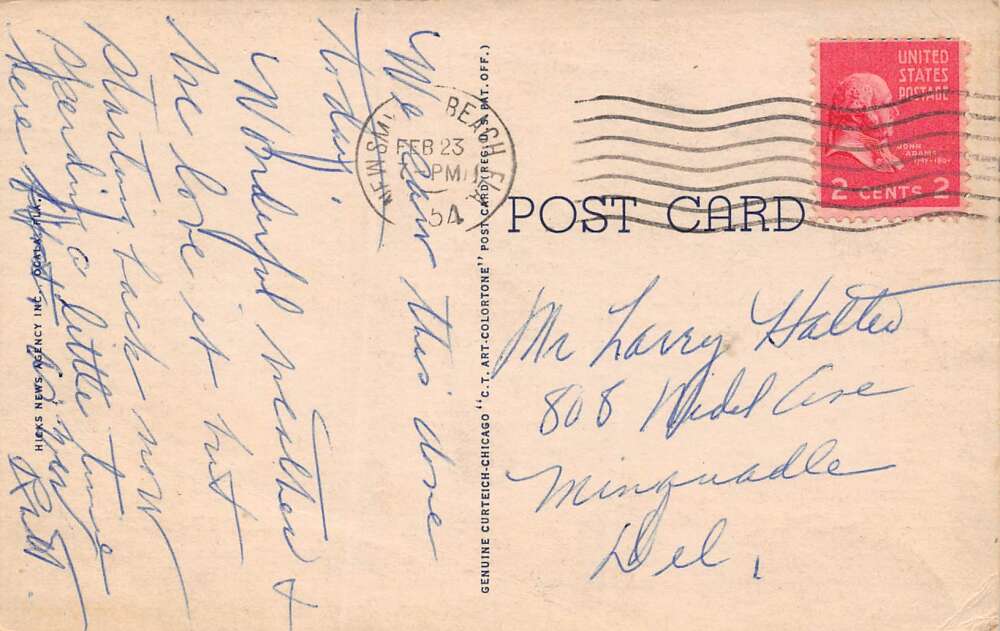 We saw this done
today,
Wonderful weather &
We love it but
starting back now
spending a little time
here
HICKS NEWS AGENCY INC., OCALA, FLA.
GENUINE CURTEICH-CHICAGO "C.T. ART-COLORTONE" POST CARD (REG. U.S. PAT. OFF.)
BEACH FLA
FEB 23
PM
54
UNITED
STATES
POSTAGE
JOHN
ADAMS
2 CENTS 2
POST CARD
Mr Larry Hatter
808 Nidel Ave
Minquadle
Del,